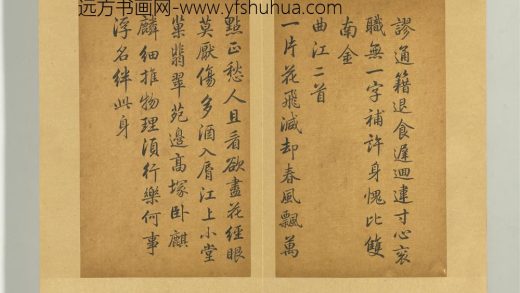 远方书画网-www.yfshuhua.com
謬通籍退食遲迴違寸心衮
職無一字補許身愧比雙
南金
曲江二首
一片花飛減却春風飄萬
點正愁人且看欲盡花經眼
莫厭傷多酒入脣江上小堂
巢翡翠苑邊高塚卧麒
麟細推物理須行樂何事
浮名絆此身